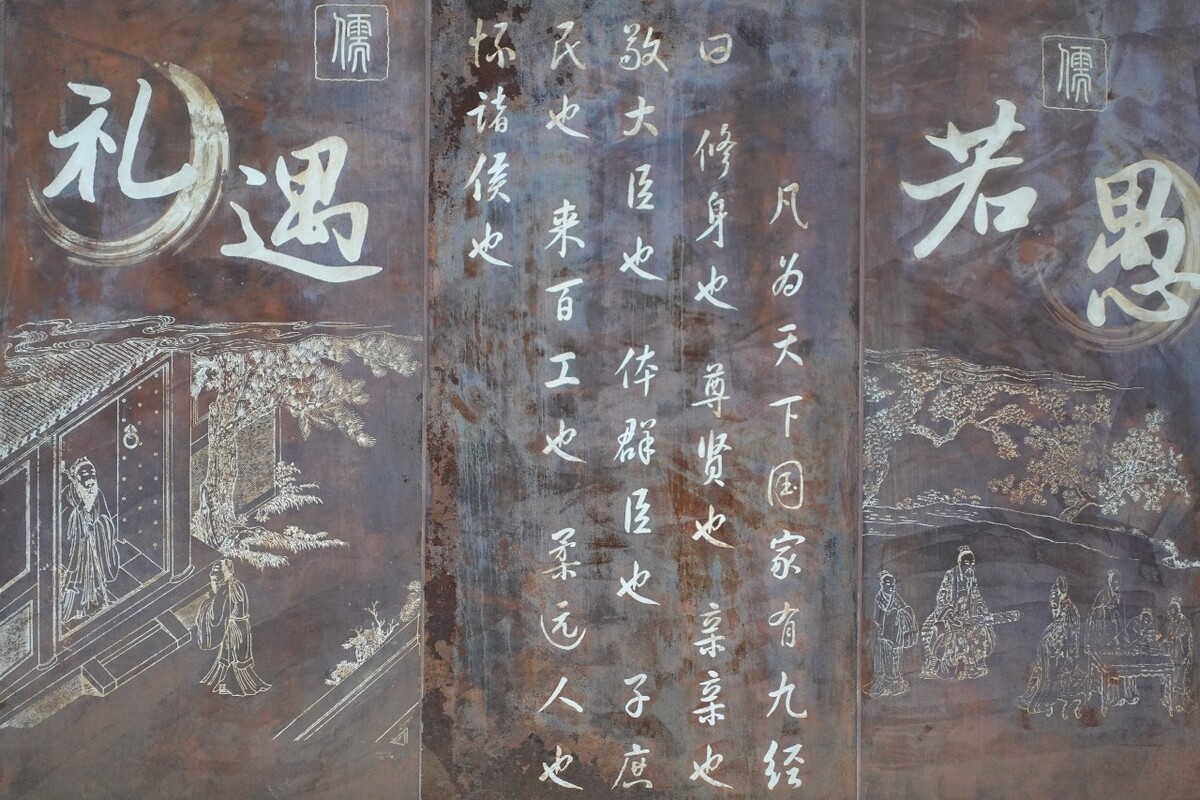 儒
若愚
凡为天下国家有九经
曰 修身也 尊贤也 亲亲也
敬大臣也 体群臣也 子庶
民也 来百工也 柔远人也
怀诸侯也
儒
礼遇